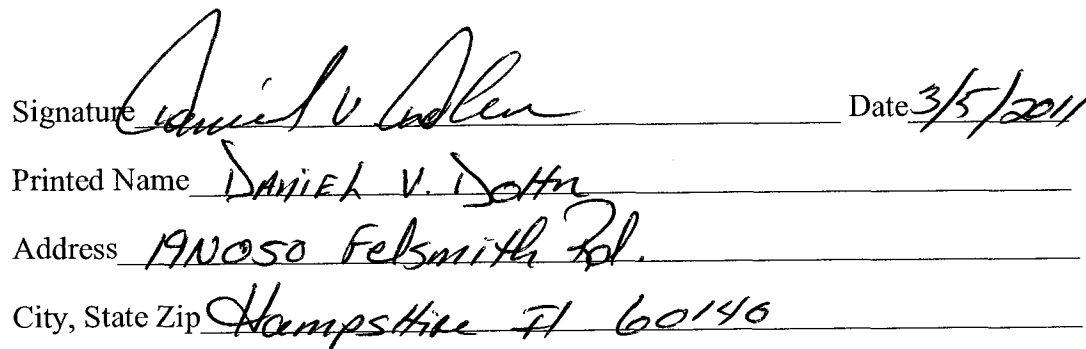 Signature Daniel V Date 3/5/2011
Printed Name DANIEL V. DOHN
Address 19N050 Felsmith Rd.
City, State Zip Hampshire Il 60140